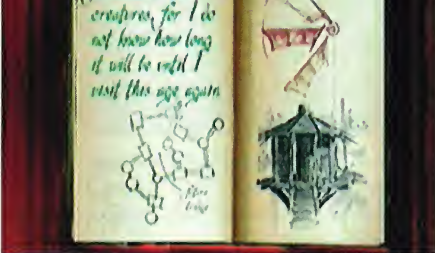 creatures, for I do
not know how long
it will be until I
visit this age again